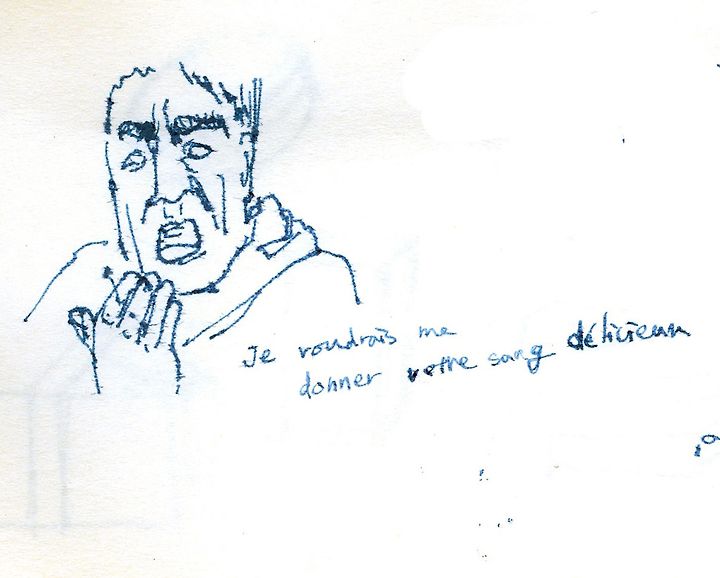 Je voudrais me
donner votre sang délicieux